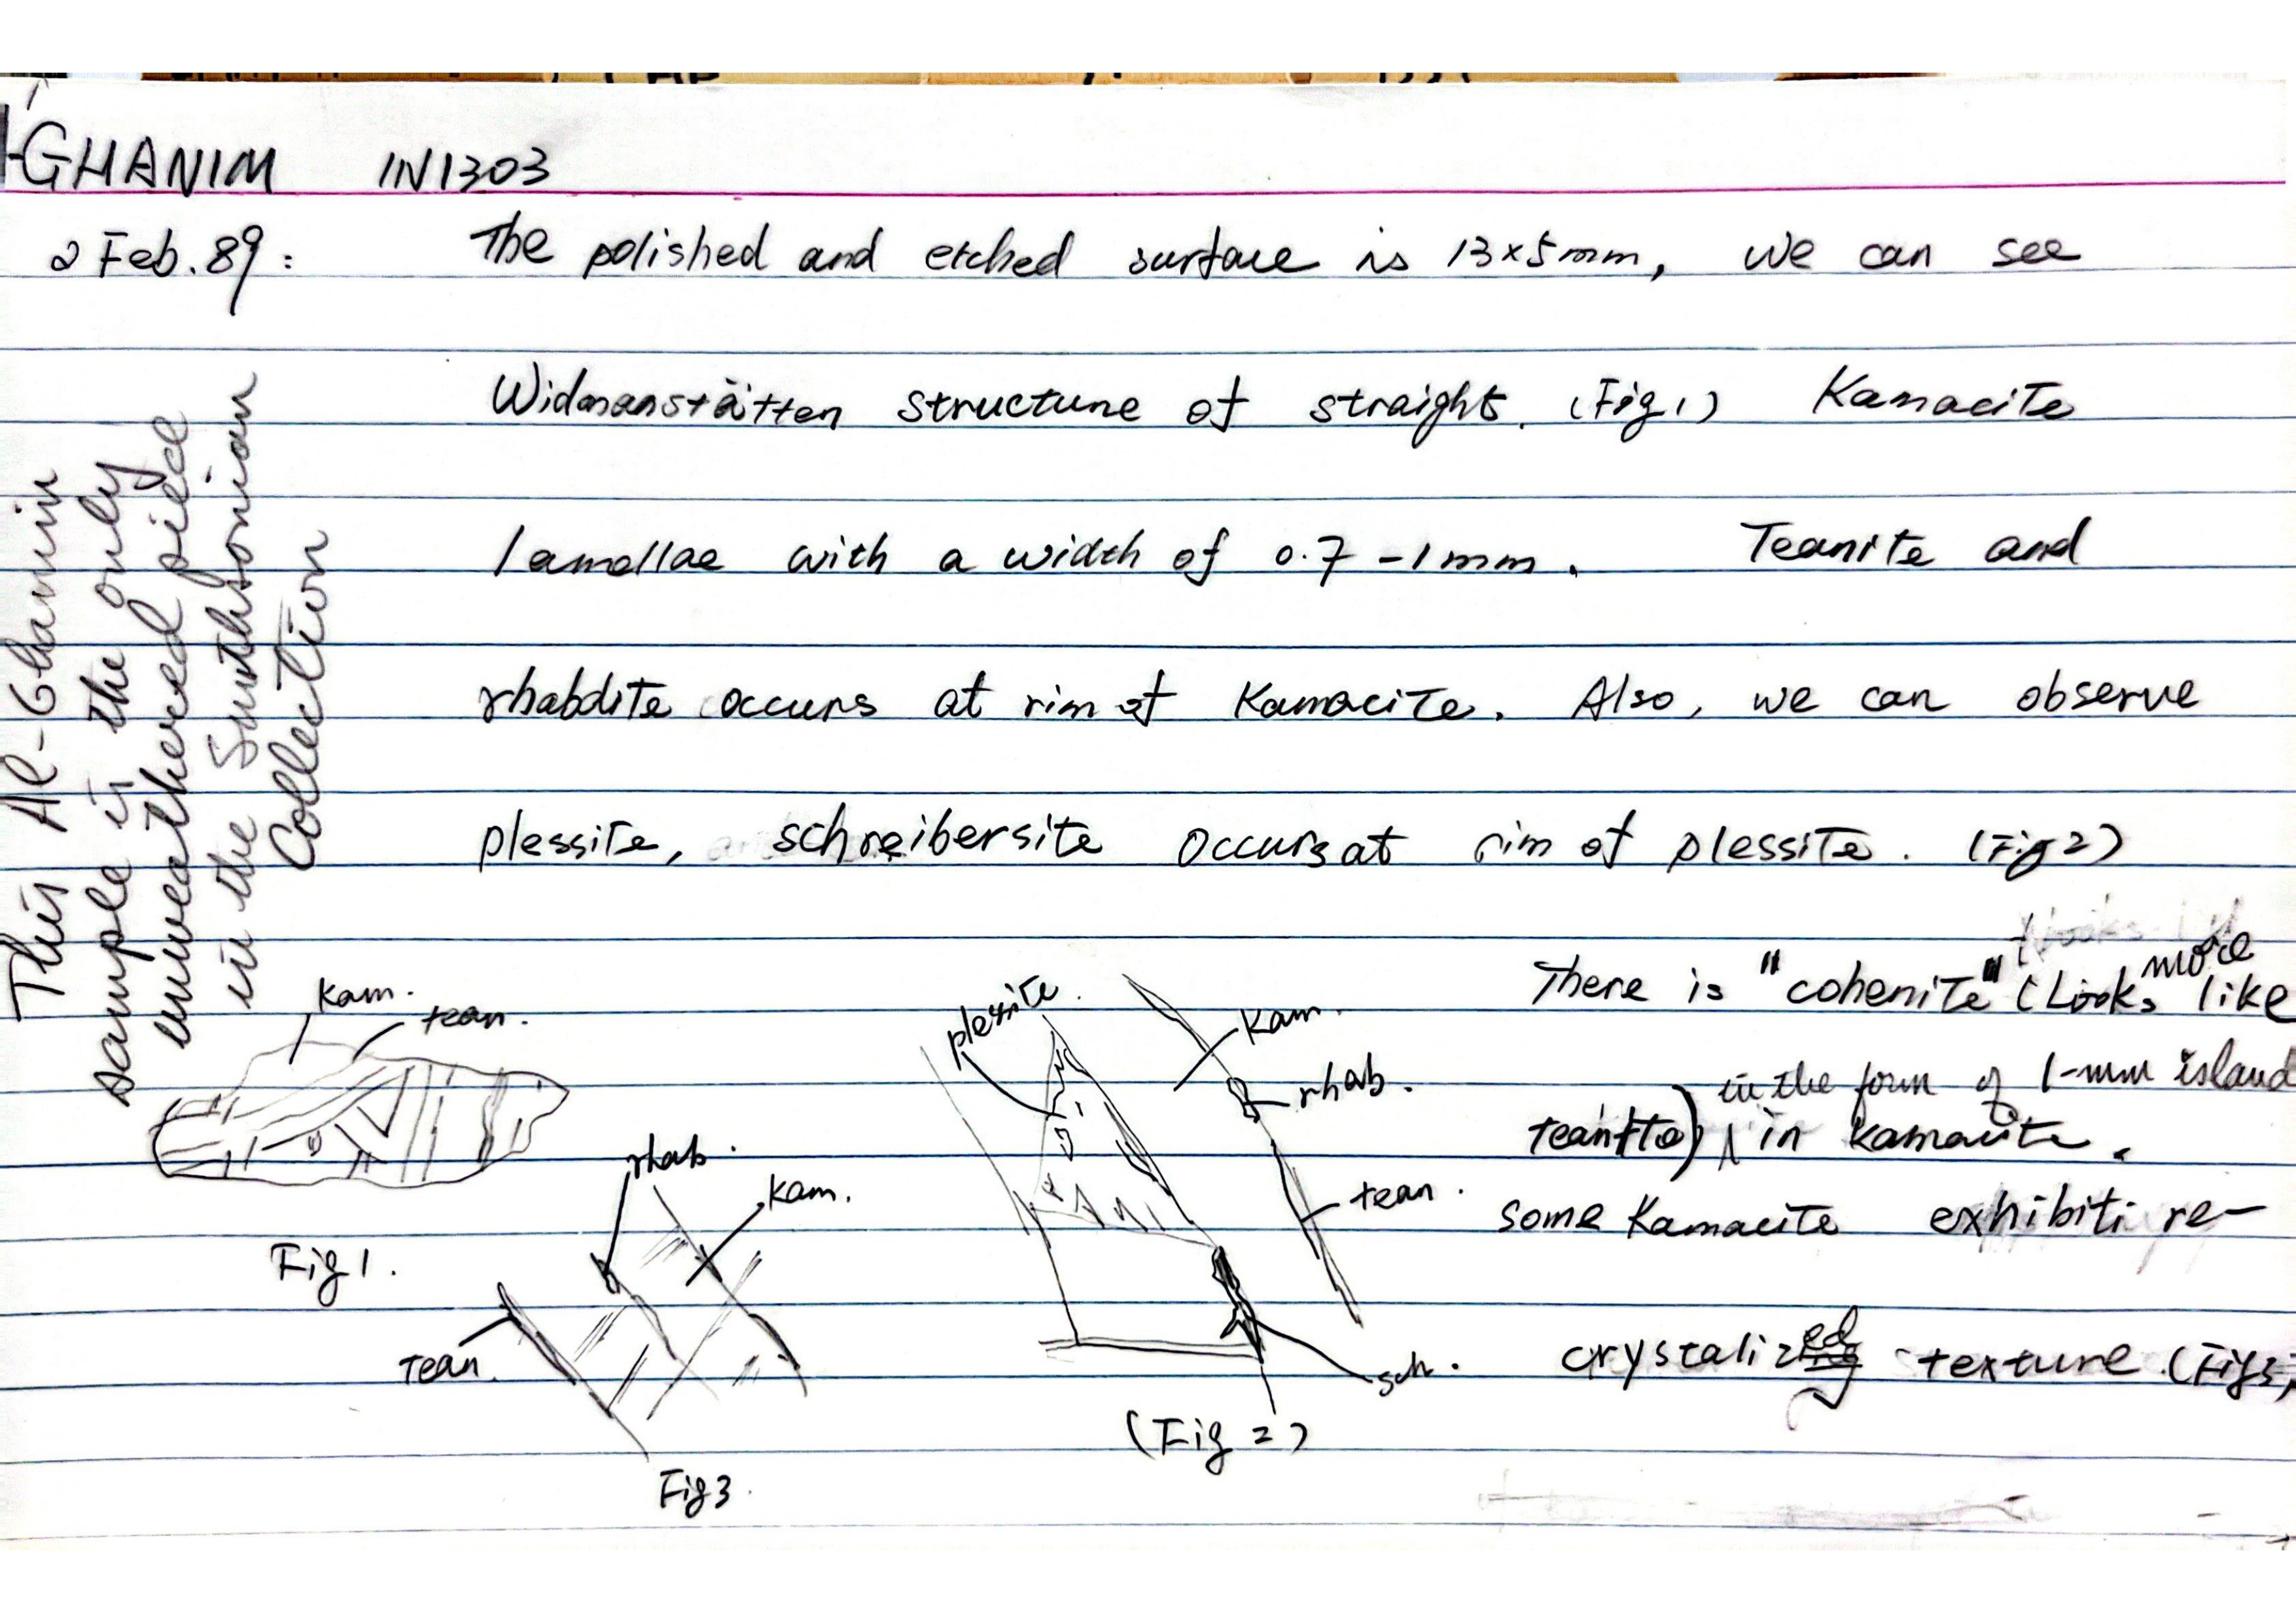 GHANIM IN1303
2 Feb. 89: The polished and etched surface is 13x5mm, we can see
Widmanstätten structure of straight. (Fig1) Kamacite
lamellae with a width of 0.7-1mm. Teanite and
rhabdite occurs at rim of Kamacite. Also, we can observe
plessite, schreibersite occurs at rim of plessite. (Fig 2)
There is "cohenite" (Looks more like
teanite) in the form of 1-mm island
in kamacite.
some Kamacite exhibit re-
crystalized texture. (Fig3,
This Al-Ghanim
sample is the only
unweathered piece
in the Smithsonian
Collection
kam.
tean.
Fig 1.
rhab.
kam.
tean.
Fig 3.
plessite.
kam.
rhab.
tean.
sch.
(Fig 2)